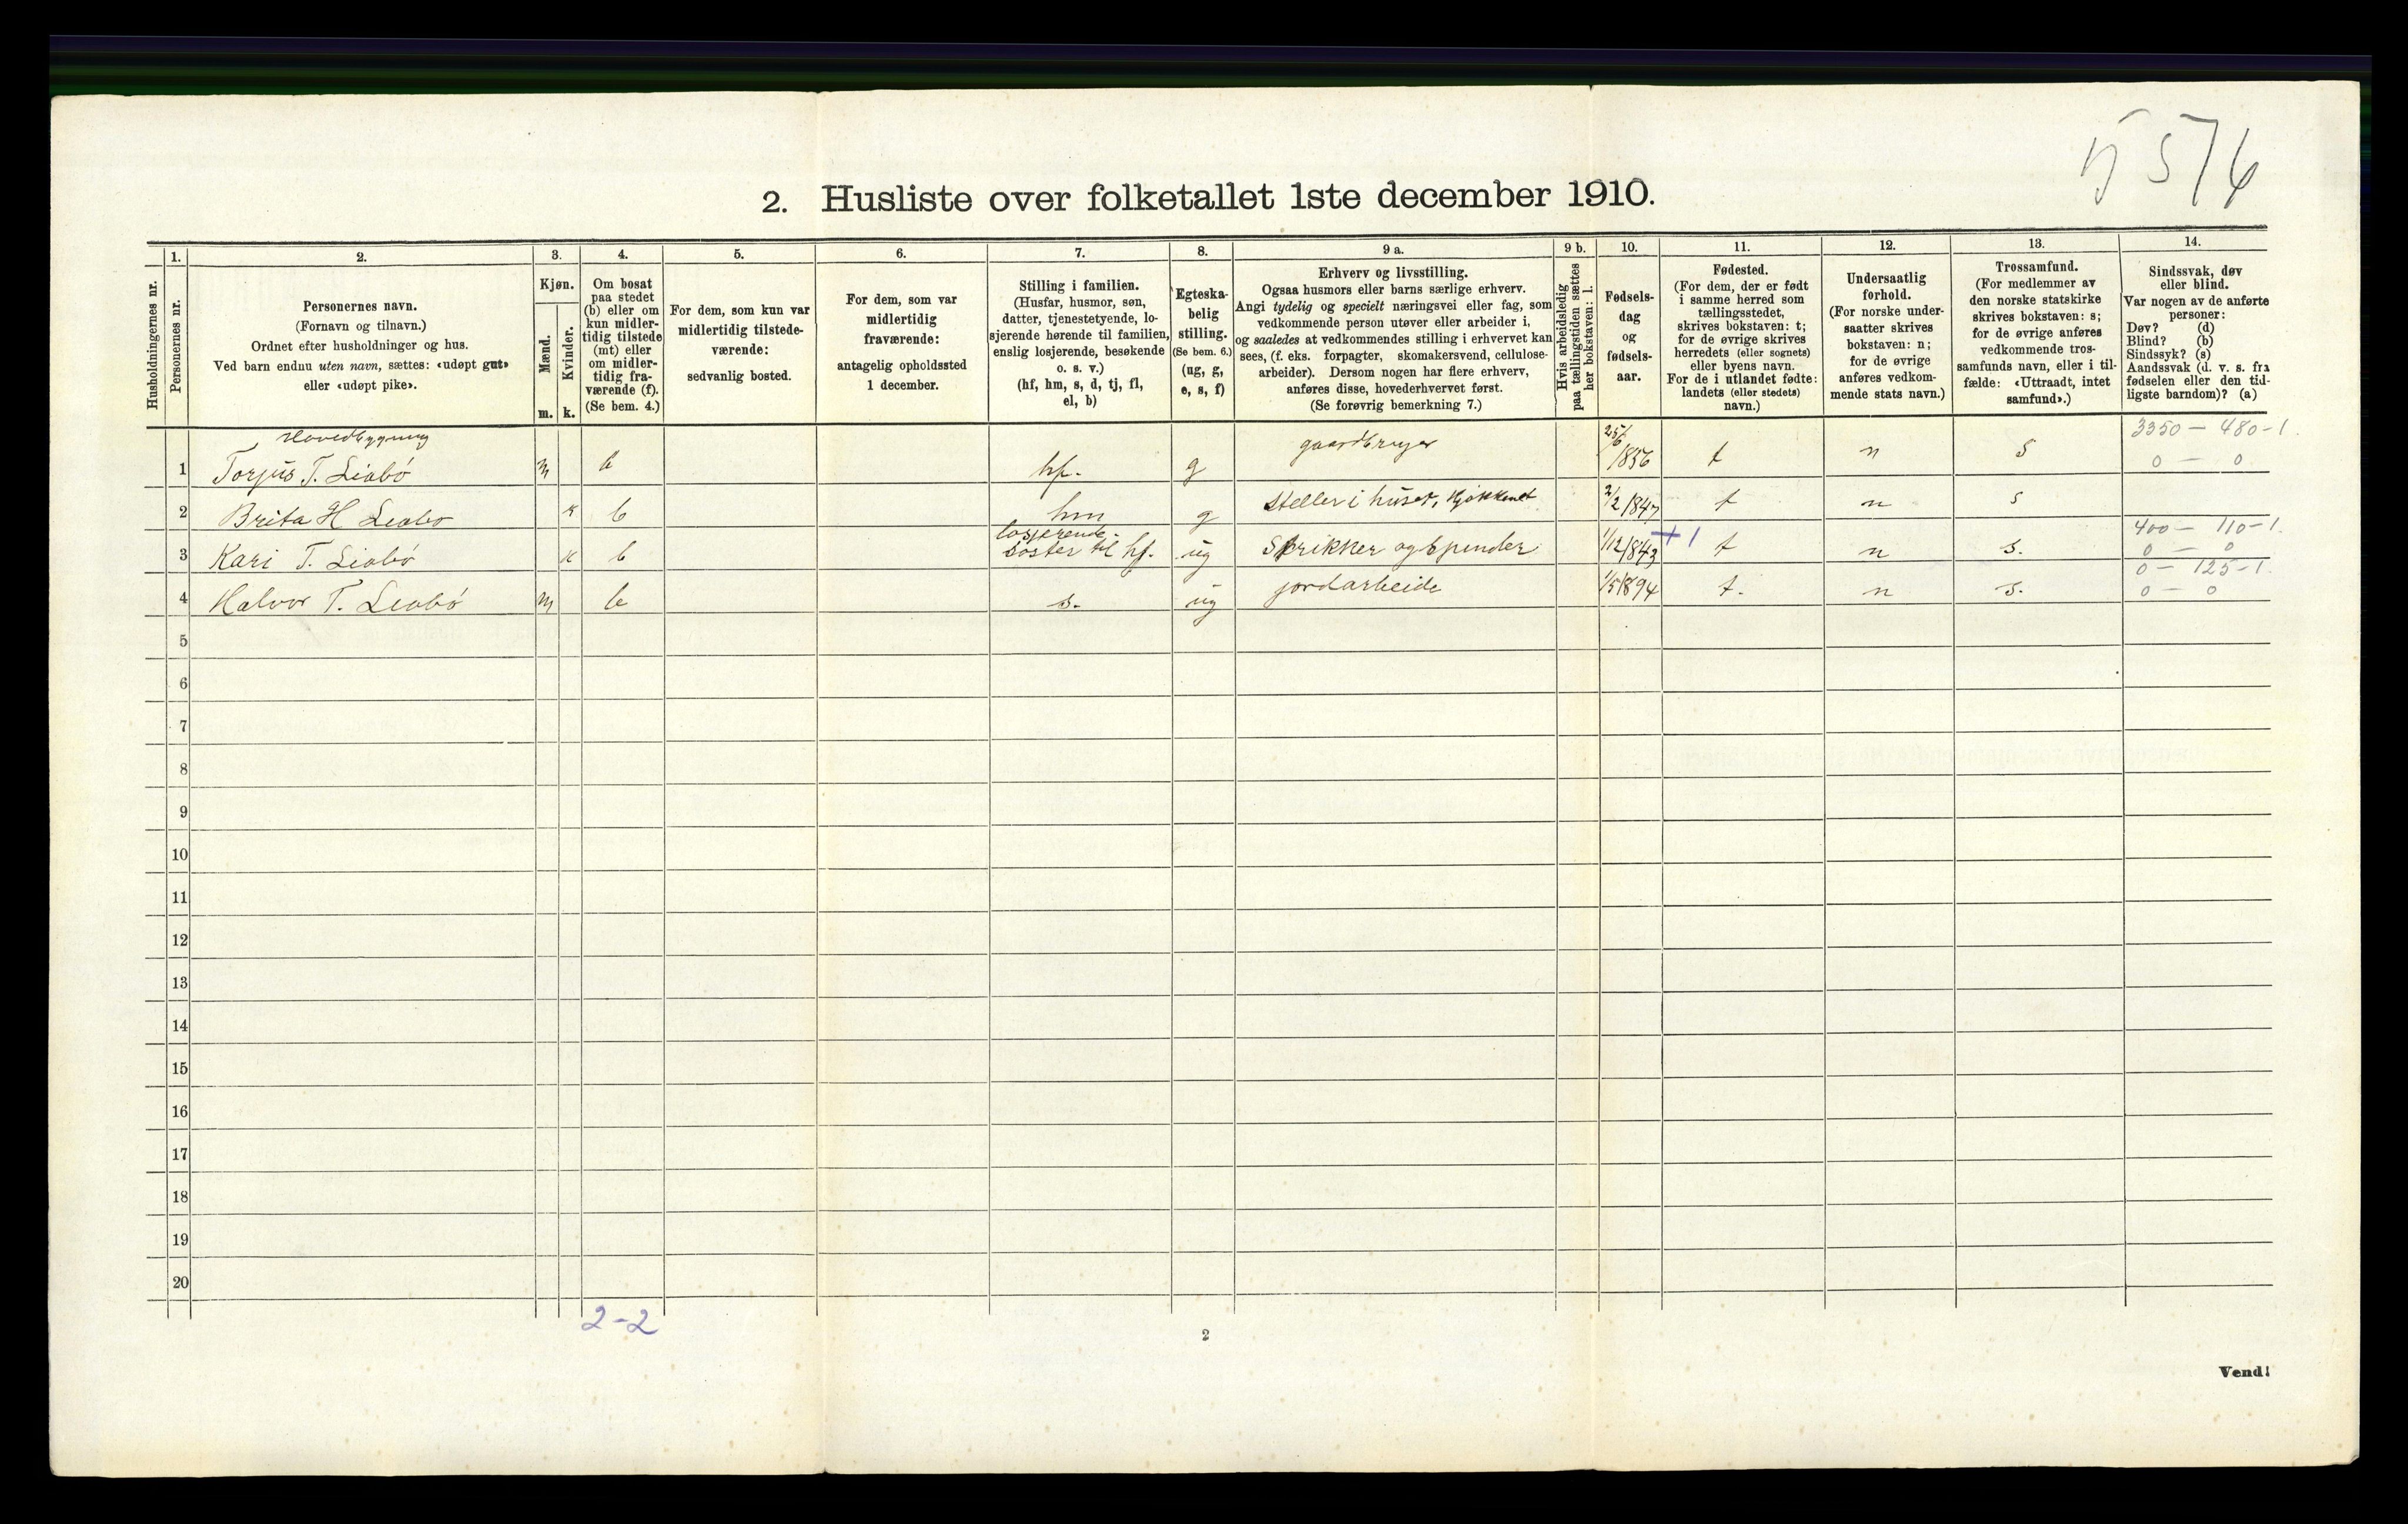 5576
2. Husliste over folketallet 1ste december 1910.
1. 2. 3. 4. 5. 6. 7. 8. 9 a. 9 b. 10. 11. 12. 13. 14.
Husholdningernes nr.
Personernes nr.
Personernes navn.
(Fornavn og tilnavn.)
Ordnet efter husholdninger og hus.
Ved barn endnu uten navn, sættes: «udøpt gut»
eller «udøpt pike».
Kjøn.
Mænd.
m.
Kvinder.
k.
Om bosat
paa stedet
(b) eller om
kun midler-
tidig tilstede
(mt) eller
om midler-
tidig fra-
værende (f).
(Se bem. 4.)
For dem, som kun var
midlertidig tilstede-
værende:
sedvanlig bosted.
For dem, som var
midlertidig
fraværende:
antagelig opholdssted
1 december.
Stilling i familien.
(Husfar, husmor, søn,
datter, tjenestetyende, lo-
sjerende hørende til familien,
enslig losjerende, besøkende
o. s. v.)
(hf, hm, s, d, tj, fl,
el, b)
Egteska-
belig
stilling.
(Se bem. 6.)
(ug, g,
e, s, f)
Erhverv og livsstilling.
Ogsaa husmors eller barns særlige erhverv.
Angi tydelig og specielt næringsvei eller fag, som
vedkommende person utøver eller arbeider i,
og saaledes at vedkommendes stilling i erhvervet kan
sees, (f. eks. forpagter, skomakersvend, cellulose-
arbeider). Dersom nogen har flere erhverv,
anføres disse, hovederhvervet først.
(Se forøvrig bemerkning 7.)
Hvis arbeidsledig
paa tællingstiden sættes
her bokstaven: l.
Fødsels-
dag
og
fødsels-
aar.
Fødested.
(For dem, der er født
i samme herred som
tællingsstedet,
skrives bokstaven: t;
for de øvrige skrives
herredets (eller sognets)
eller byens navn.
For de i utlandet fødte:
landets (eller stedets)
navn.)
Undersaatlig
forhold.
(For norske under-
saatter skrives
bokstaven: n;
for de øvrige
anføres vedkom-
mende stats navn.)
Trossamfund.
(For medlemmer av
den norske statskirke
skrives bokstaven: s;
for de øvrige anføres
vedkommende tros-
samfunds navn, eller i til-
fælde: «Uttraadt, intet
samfund».)
Sindssvak, døv
eller blind.
Var nogen av de anførte
personer:
Døv? (d)
Blind? (b)
Sindssyk? (s)
Aandssvak (d. v. s. fra
fødselen eller den tid-
ligste barndom)? (a)
Hovedbygning 3350 — 480-1.
1 Torjus T. Liabö m b hf. g gaardbruger 25/6 1856 t n s 0 — 0
2 Brita H Leabo k b hm g steller i huset, kjøkkenet 2/2 1847 t n s
losjerende 400 — 110-1.
3 Kari T. Liabö k b söster til hf. ug Strikker og spinder 1/12 1843 +1 t n s. 0 — 0
0 — 125-1.
4 Halvor T. Leabö m b s. ug jordarbeide 1/5 1894 t. n s. 0 — 0
5
6
7
8
9
10
11
12
13
14
15
16
17
18
19
20
2-2
2
Vend!